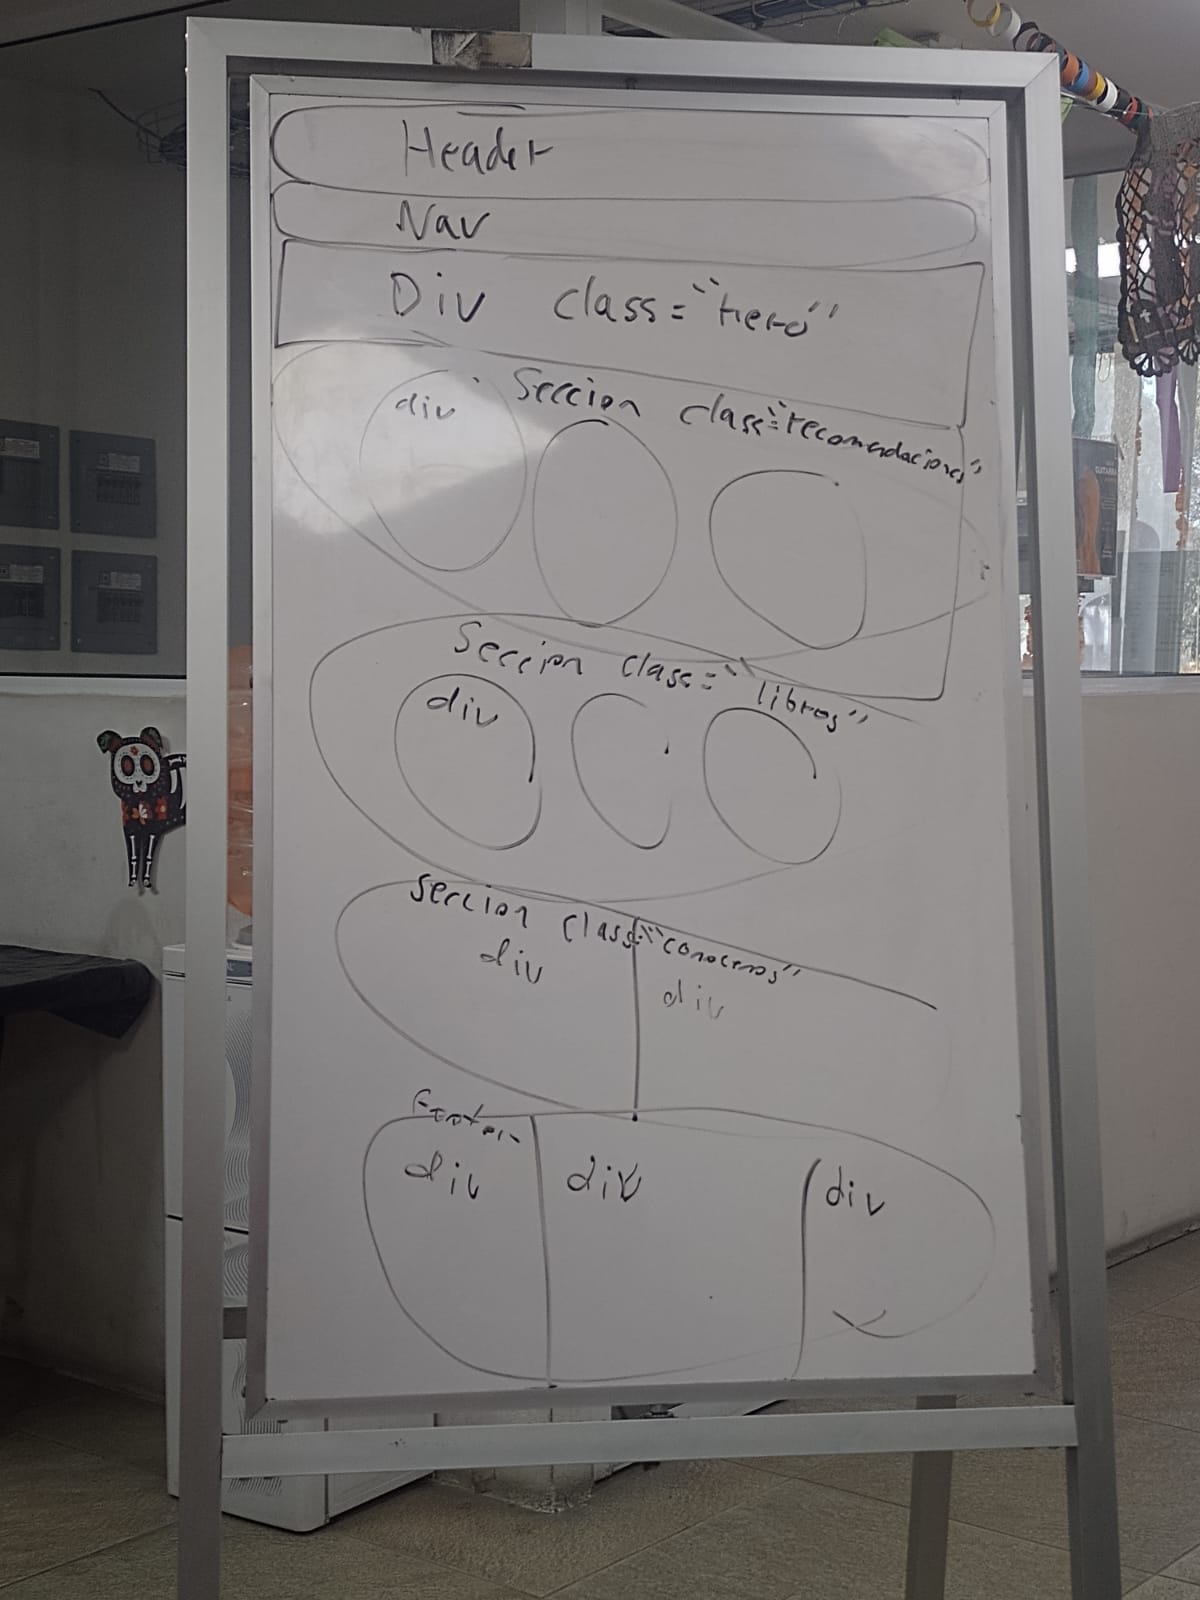 Header
Nav
Div class="hero"
Seccion class="recomendaciones"
div
Seccion class="libros"
div
Seccion class="conocenos"
div div
Footer
div div div